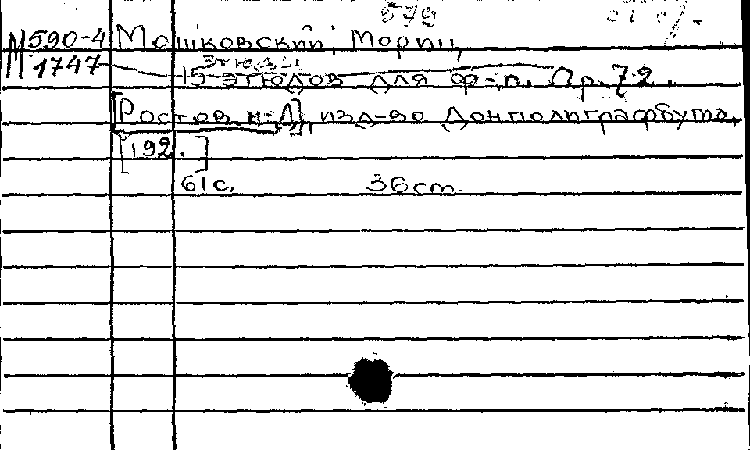 579
М 590-4 Мошковский, Мориц
1747 Этюды
15 этюдов для ф-п. Op. 72.
[Ростов н-Д], изд-во Донполиграфбума,
[192. ]
61 с. 36 cm.